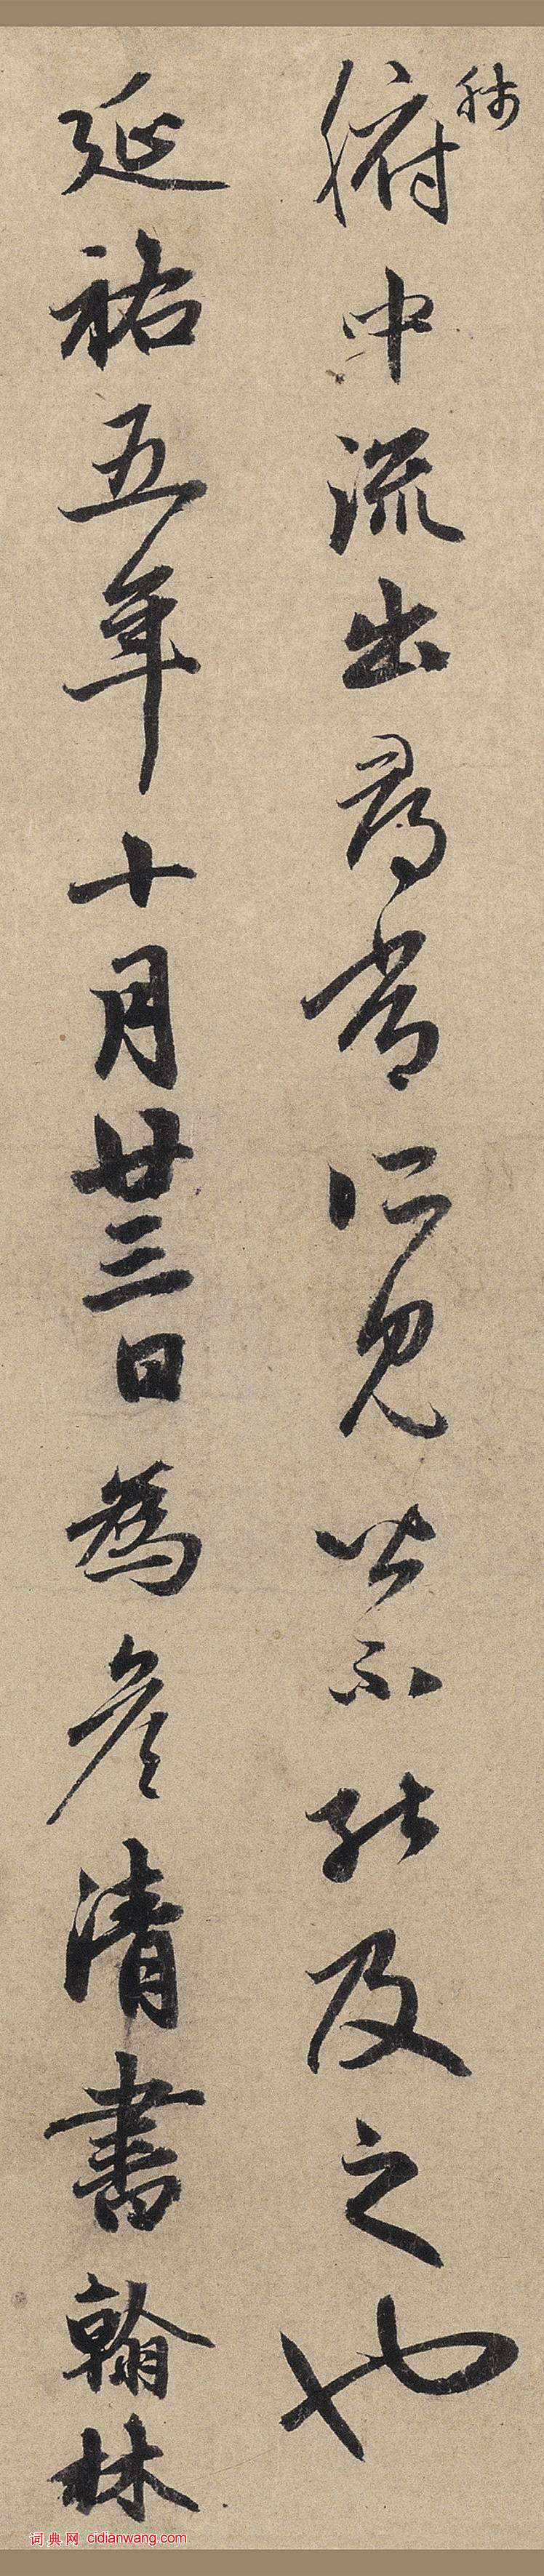 肺
腑中流出尋常所見皆不能及之也
延祐五年十月廿三日為彦清書翰林
词典网 cidianwang.com